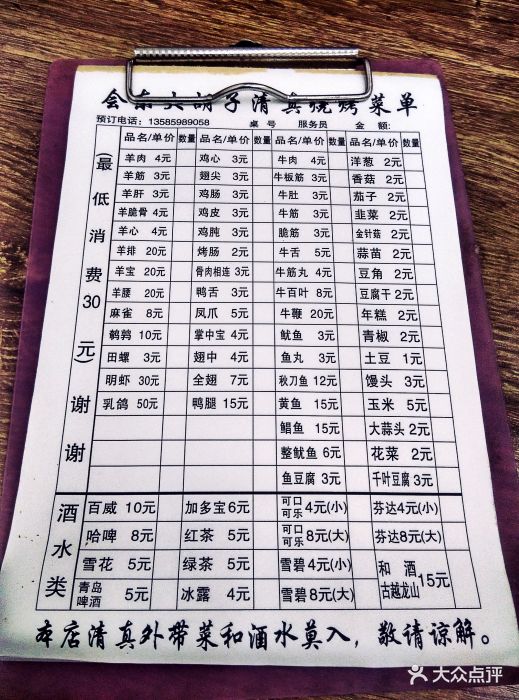 会东大胡子清真烧烤菜单
预订电话：13585989058 桌号 服务员 金额：
品名/单价 数量 品名/单价 数量 品名/单价 数量 品名/单价 数量
(最低消费30元)谢谢
羊肉 4元 鸡心 3元 牛肉 4元 洋葱 2元
羊筋 3元 翅尖 3元 牛板筋 3元 香菇 2元
羊肝 3元 鸡肠 3元 牛肚 3元 茄子 2元
羊脆骨 4元 鸡皮 3元 牛筋 3元 韭菜 2元
羊心 4元 鸡肫 3元 脆筋 3元 金针菇 2元
羊排 20元 烤肠 2元 牛舌 5元 蒜苗 2元
羊宝 20元 骨肉相连 3元 牛筋丸 4元 豆角 2元
羊腰 20元 鸭舌 3元 牛百叶 8元 豆腐干 2元
麻雀 8元 凤爪 5元 牛鞭 20元 年糕 2元
鹌鹑 10元 掌中宝 4元 鱿鱼 3元 青椒 2元
田螺 3元 翅中 4元 鱼丸 3元 土豆 1元
明虾 30元 全翅 7元 秋刀鱼 12元 馒头 3元
乳鸽 50元 鸭腿 15元 黄鱼 15元 玉米 5元
鲳鱼 15元 大蒜头 2元
整鱿鱼 6元 花菜 2元
鱼豆腐 3元 千叶豆腐 3元
酒水类
百威 10元 加多宝 6元 可口可乐 4元(小) 芬达4元(小)
哈啤 8元 红茶 5元 可口可乐 8元(大) 芬达8元(大)
雪花 5元 绿茶 5元 雪碧4元(小) 和酒 古越龙山 15元
青岛啤酒 5元 冰露 4元 雪碧8元(大)
本店清真外带菜和酒水莫入，敬请谅解。
大众点评